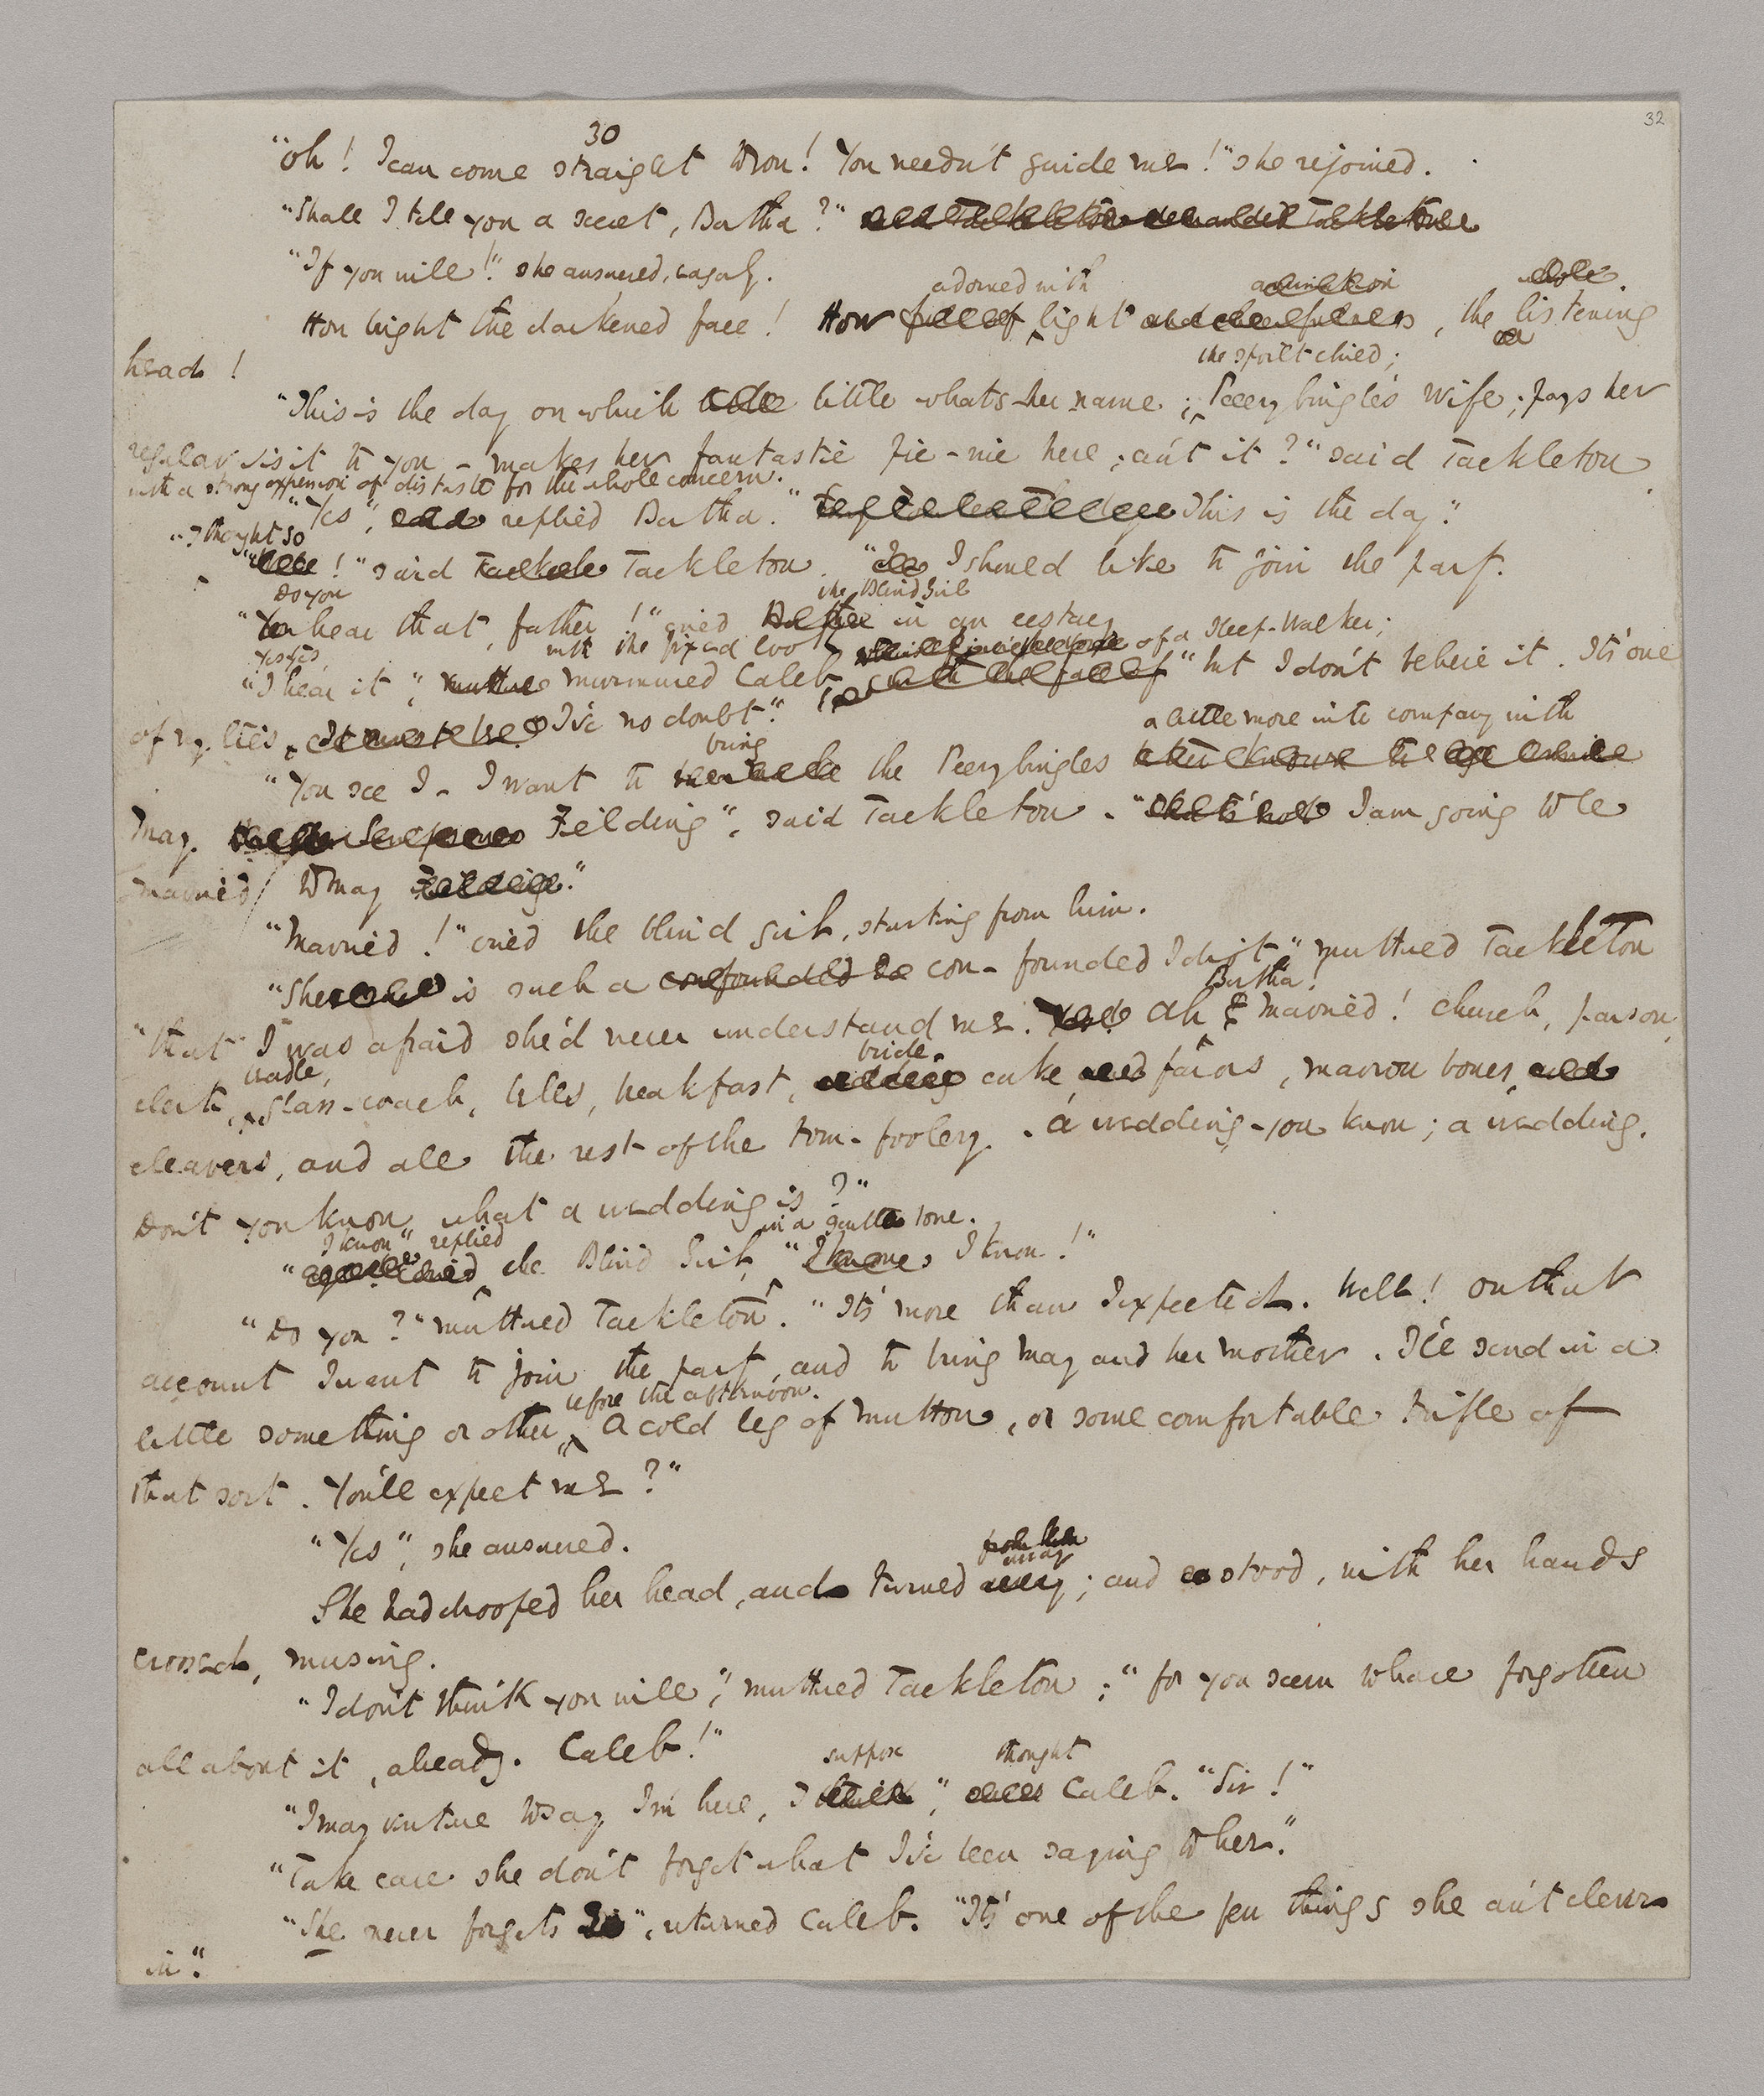 32
30
"Oh! I can come straight to you! You needn't guide me!" she rejoined.
"Shall I tell you a secret, Bertha?"
"If you will!" she answered, eagerly.
adorned with
How bright the darkened face! How light, the listening
head!
the spoilt child;
"This is the day on which little what's-her name; Peerybingle's wife; pays her
regular visit to you - makes her fantastic Pic-nic here; an't it?" said Tackleton
with a strong expression of distaste for the whole concern.
"Yes", replied Bertha. "This is the day."
"I thought so
!" said Tackleton. "I should like to join the party.
Do you the Blind Girl
" hear that, father!" cried in an ecstacy
Yes yes, with the fixed look of a Sleep-Walker;
"I hear it", murmured Caleb "but I don't believe it. It's one
of my lies, I've no doubt."
bring a little more into company with
"You see I - I want to the Peerybingles
May Feilding", said Tackleton. " I am going to be
married to May "
"Married!" cried the blind girl, starting from him.
"She is such a con-founded Idiot," muttered Tackleton
Bertha!
"that I was afraid she'd never understand me. Ah Married! Church, parson,
beadle, bride-
clerk, glass-coach, bells, breakfast, cake, favors, marrow bones,
cleavers, and all the rest of the tom-foolery. A wedding - you know; a wedding.
Don't you know what a wedding is?"
I know" replied in a gentle tone.
" the Blind Girl, " I know!"
"Do you?" muttered Tackleton. "It's more than I expected. Well! On that
account I want to join the party, and to bring May and her mother. I'll send in a
before the afternoon.
little something or other, A cold leg of mutton, or some comfortable trifle of
that sort. You'll expect me?"
"Yes", she answered.
away
She had drooped her head, and turned ; and stood, with her hands
crossed, musing.
"I don't think you will", muttered Tackleton; "for you seem to have forgotten
all about it, already. Caleb!"
suppose thought
"I may venture to say I'm here, I ", Caleb. "Sir!"
"Take care she don't forget what I've been saying to her."
"She never forgets", returned Caleb. "It's one of the few things she an't clever
in."